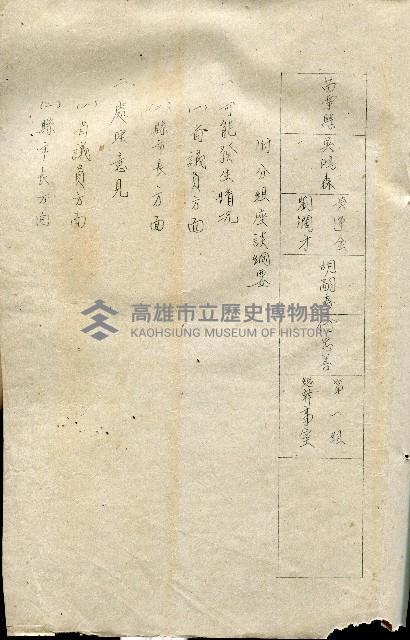 苗栗縣
吳鴻森
劉潤才
忠善
第一組
總幹事室
附分組座談綱要
一 可能發生情况
(一) 省議員方面
(二) 縣市長方面
二 處理意見
(一) 省議員方面
(二) 縣市長方面
高雄市立歷史博物館
KAOHSIUNG MUSEUM OF HISTORY